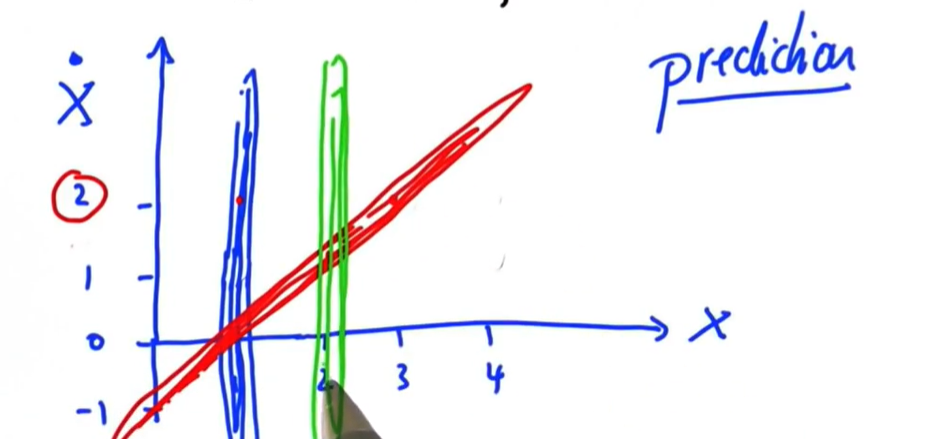 prediction
Ẋ
2
1
0
-1
2
3
4
X